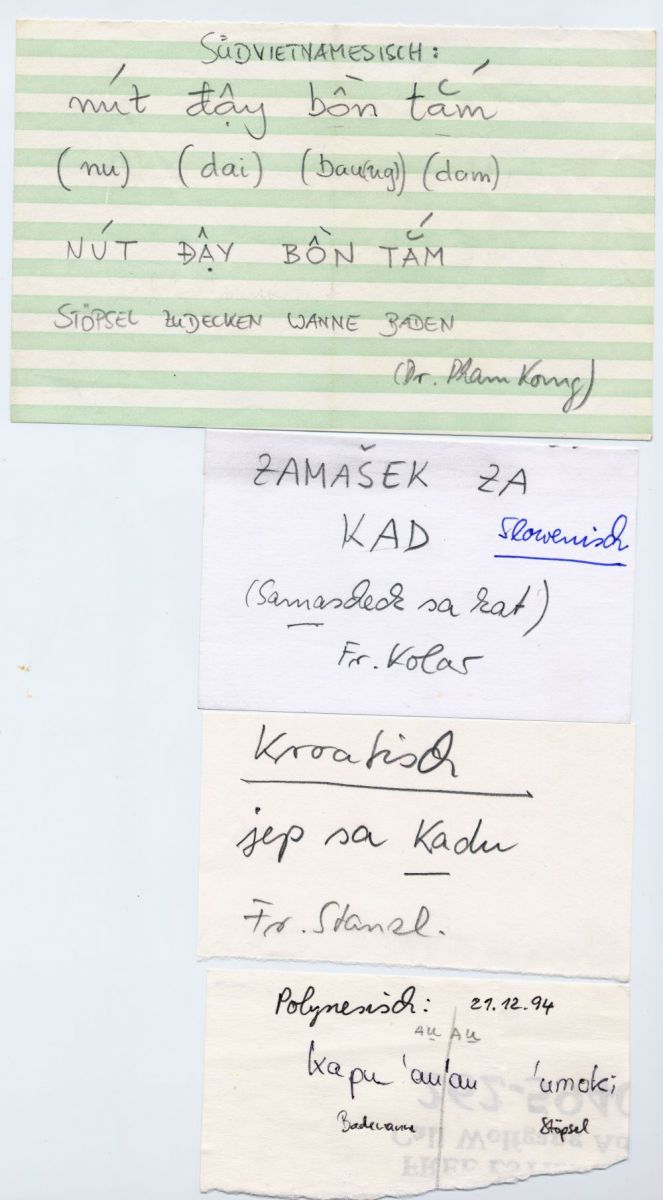 SÜDVIETNAMESISCH:
nút đậy bồn tắm
(nu) (dai) (bau(ng)) (dam)
NÚT ĐẬY BỒN TẮM
STÖPSEL ZUDECKEN WANNE BADEN
(Dr. Pham Kong)
ZAMAŠEK ZA
KAD Slowenisch
(Samascheck sa kat)
Fr. Kolar
Kroatisch
jep sa Kadu
Fr. Stanzl.
Polynesisch: 21.12.94
AU AU
kapu 'au'au 'umoki
Badewanne Stöpsel
262-5940
Call Wolfgang